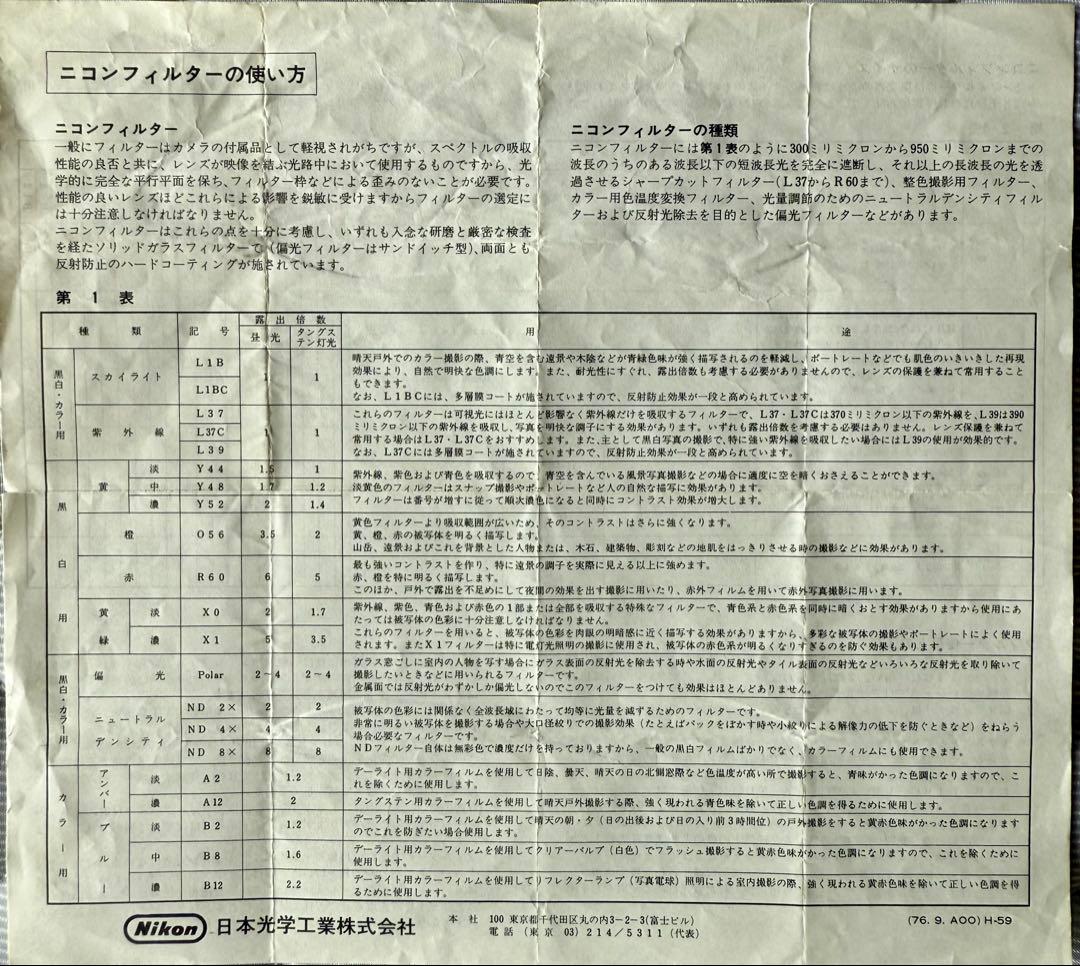 ニコンフィルターの使い方
ニコンフィルター
一般にフィルターはカメラの付属品として軽視されがちですが、スペクトルの吸収
性能の良否と共に、レンズが映像を結ぶ光路中において使用するものですから、光
学的に完全な平行平面を保ち、フィルター枠などによる歪みのないことが必要です。
性能の良いレンズほどこれらによる影響を鋭敏に受けますからフィルターの選定に
は十分注意しなければなりません。
ニコンフィルターはこれらの点を十分に考慮し、いずれも入念な研磨と厳密な検査
を経たソリッドガラスフィルターで(偏光フィルターはサンドイッチ型)、両面とも
反射防止のハードコーティングが施されています。
ニコンフィルターの種類
ニコンフィルターには第1表のように300ミリミクロンから950ミリミクロンまでの
波長のうちのある波長以下の短波長光を完全に遮断し、それ以上の長波長の光を透
過させるシャープカットフィルター(L37からR60まで)、整色撮影用フィルター、
カラー用色温度変換フィルター、光量調節のためのニュートラルデンシティフィル
ターおよび反射光除去を目的とした偏光フィルターなどがあります。
第1表
種類 記号 露出倍数 用途
昼光 タングステン灯光
黒白・カラー用
スカイライト L1B L1BC 1 1
晴天戸外でのカラー撮影の際、青空を含む遠景や木陰などが青緑色味が強く描写されるのを軽減し、ポートレートなどでも肌色のいきいきした再現
効果により、自然で明快な色調にします。また、耐光性にすぐれ、露出倍数も考慮する必要がありませんので、レンズの保護を兼ねて常用すること
もできます。
なお、L1BCには、多層膜コートが施されていますので、反射防止効果が一段と高められています。
紫外線 L37 L37C L39 1 1
これらのフィルターは可視光にはほとんど影響なく紫外線だけを吸収するフィルターで、L37・L37Cは370ミリミクロン以下の紫外線を、L39は390
ミリミクロン以下の紫外線を吸収し、写真を明快な調子にする効果があります。いずれも露出倍数を考慮する必要はありません。レンズ保護を兼ねて
常用する場合はL37・L37Cをおすすめします。また、主として黒白写真の撮影で、特に強い紫外線を吸収したい場合にはL39の使用が効果的です。
なお、L37Cには多層膜コートが施されていますので、反射防止効果が一段と高められています。
黒白用
黄 淡 Y44 1.5 1
中 Y48 1.7 1.2
濃 Y52 2 1.4
紫外線、紫色および青色を吸収するので、青空を含んでいる風景写真撮影などの場合に適度に空を暗くおさえることができます。
淡黄色のフィルターはスナップ撮影やポートレートなど人の自然な描写に効果があります。
フィルターは番号が増すに従って順次濃色になると同時にコントラスト効果が増大します。
橙 O56 3.5 2
黄色フィルターより吸収範囲が広いため、そのコントラストはさらに強くなります。
黄、橙、赤の被写体を明るく描写します。
山岳、遠景およびこれを背景とした人物または、木石、建築物、彫刻などの地肌をはっきりさせる時の撮影などに効果があります。
赤 R60 6 5
最も強いコントラストを作り、特に遠景の調子を実際に見える以上に強めます。
赤、橙を特に明るく描写します。
このほか、戸外で露出を不足めにして夜間の効果を出す撮影に用いたり、赤外フィルムを用いて赤外写真撮影に用います。
黄緑 淡 X0 2 1.7
濃 X1 5 3.5
紫外線、紫色、青色および赤色の1部または全部を吸収する特殊なフィルターで、青色系と赤色系を同時に暗くおとす効果がありますから使用にあ
たっては被写体の色彩に十分注意しなければなりません。
これらのフィルターを用いると、被写体の色彩を肉眼の明暗感に近く描写する効果がありますから、多彩な被写体の撮影やポートレートによく使用
されます。またX1フィルターは特に電灯光照明の撮影に使用され、被写体の赤色系が明るくなりすぎるのを防ぐ効果もあります。
黒白・カラー用
偏光 Polar 2~4 2~4
ガラス窓ごしに室内の人物を写す場合にガラス表面の反射光を除去する時や水面の反射光やタイル表面の反射光などいろいろな反射光を取り除いて
撮影したいときなどに用いられるフィルターです。
金属面では反射光がわずかしか偏光しないのでこのフィルターをつけても効果はほとんどありません。
ニュートラルデンシティ ND 2× 2 2
ND 4× 4 4
ND 8× 8 8
被写体の色彩には関係なく全波長域にわたって均等に光量を減ずるためのフィルターです。
非常に明るい被写体を撮影する場合や大口径絞りでの撮影効果(たとえばバックをぼかす時や小絞りによる解像力の低下を防ぐときなど)をねらう
場合必要なフィルターです。
NDフィルター自体は無彩色で濃度だけを持っておりますから、一般の黒白フィルムばかりでなく、カラーフィルムにも使用できます。
カラー用
アンバー 淡 A2 1.2
デーライト用カラーフィルムを使用して日陰、曇天、晴天の日の北側窓際など色温度が高い所で撮影すると、青味がかった色調になりますので、こ
れを除くために使用します。
濃 A12 2
タングステン用カラーフィルムを使用して晴天戸外撮影する際、強く現われる青色味を除いて正しい色調を得るために使用します。
ブルー 淡 B2 1.2
デーライト用カラーフィルムを使用して晴天の朝・夕(日の出後および日の入り前3時間位)の戸外撮影をすると黄赤色味がかった色調になります
のでこれを防ぎたい場合使用します。
中 B8 1.6
デーライト用カラーフィルムを使用してクリアーバルブ(白色)でフラッシュ撮影すると黄赤色味がかった色調になりますので、これを除くために
使用します。
濃 B12 2.2
デーライト用カラーフィルムを使用してリフレクターランプ(写真電球)照明による室内撮影の際、強く現われる黄赤色味を除いて正しい色調を得
るために使用します。
Nikon 日本光学工業株式会社
本社 100 東京都千代田区丸の内3-2-3(富士ビル)
電話(東京 03)214/5311(代表)
(76.9.AOO)H-59